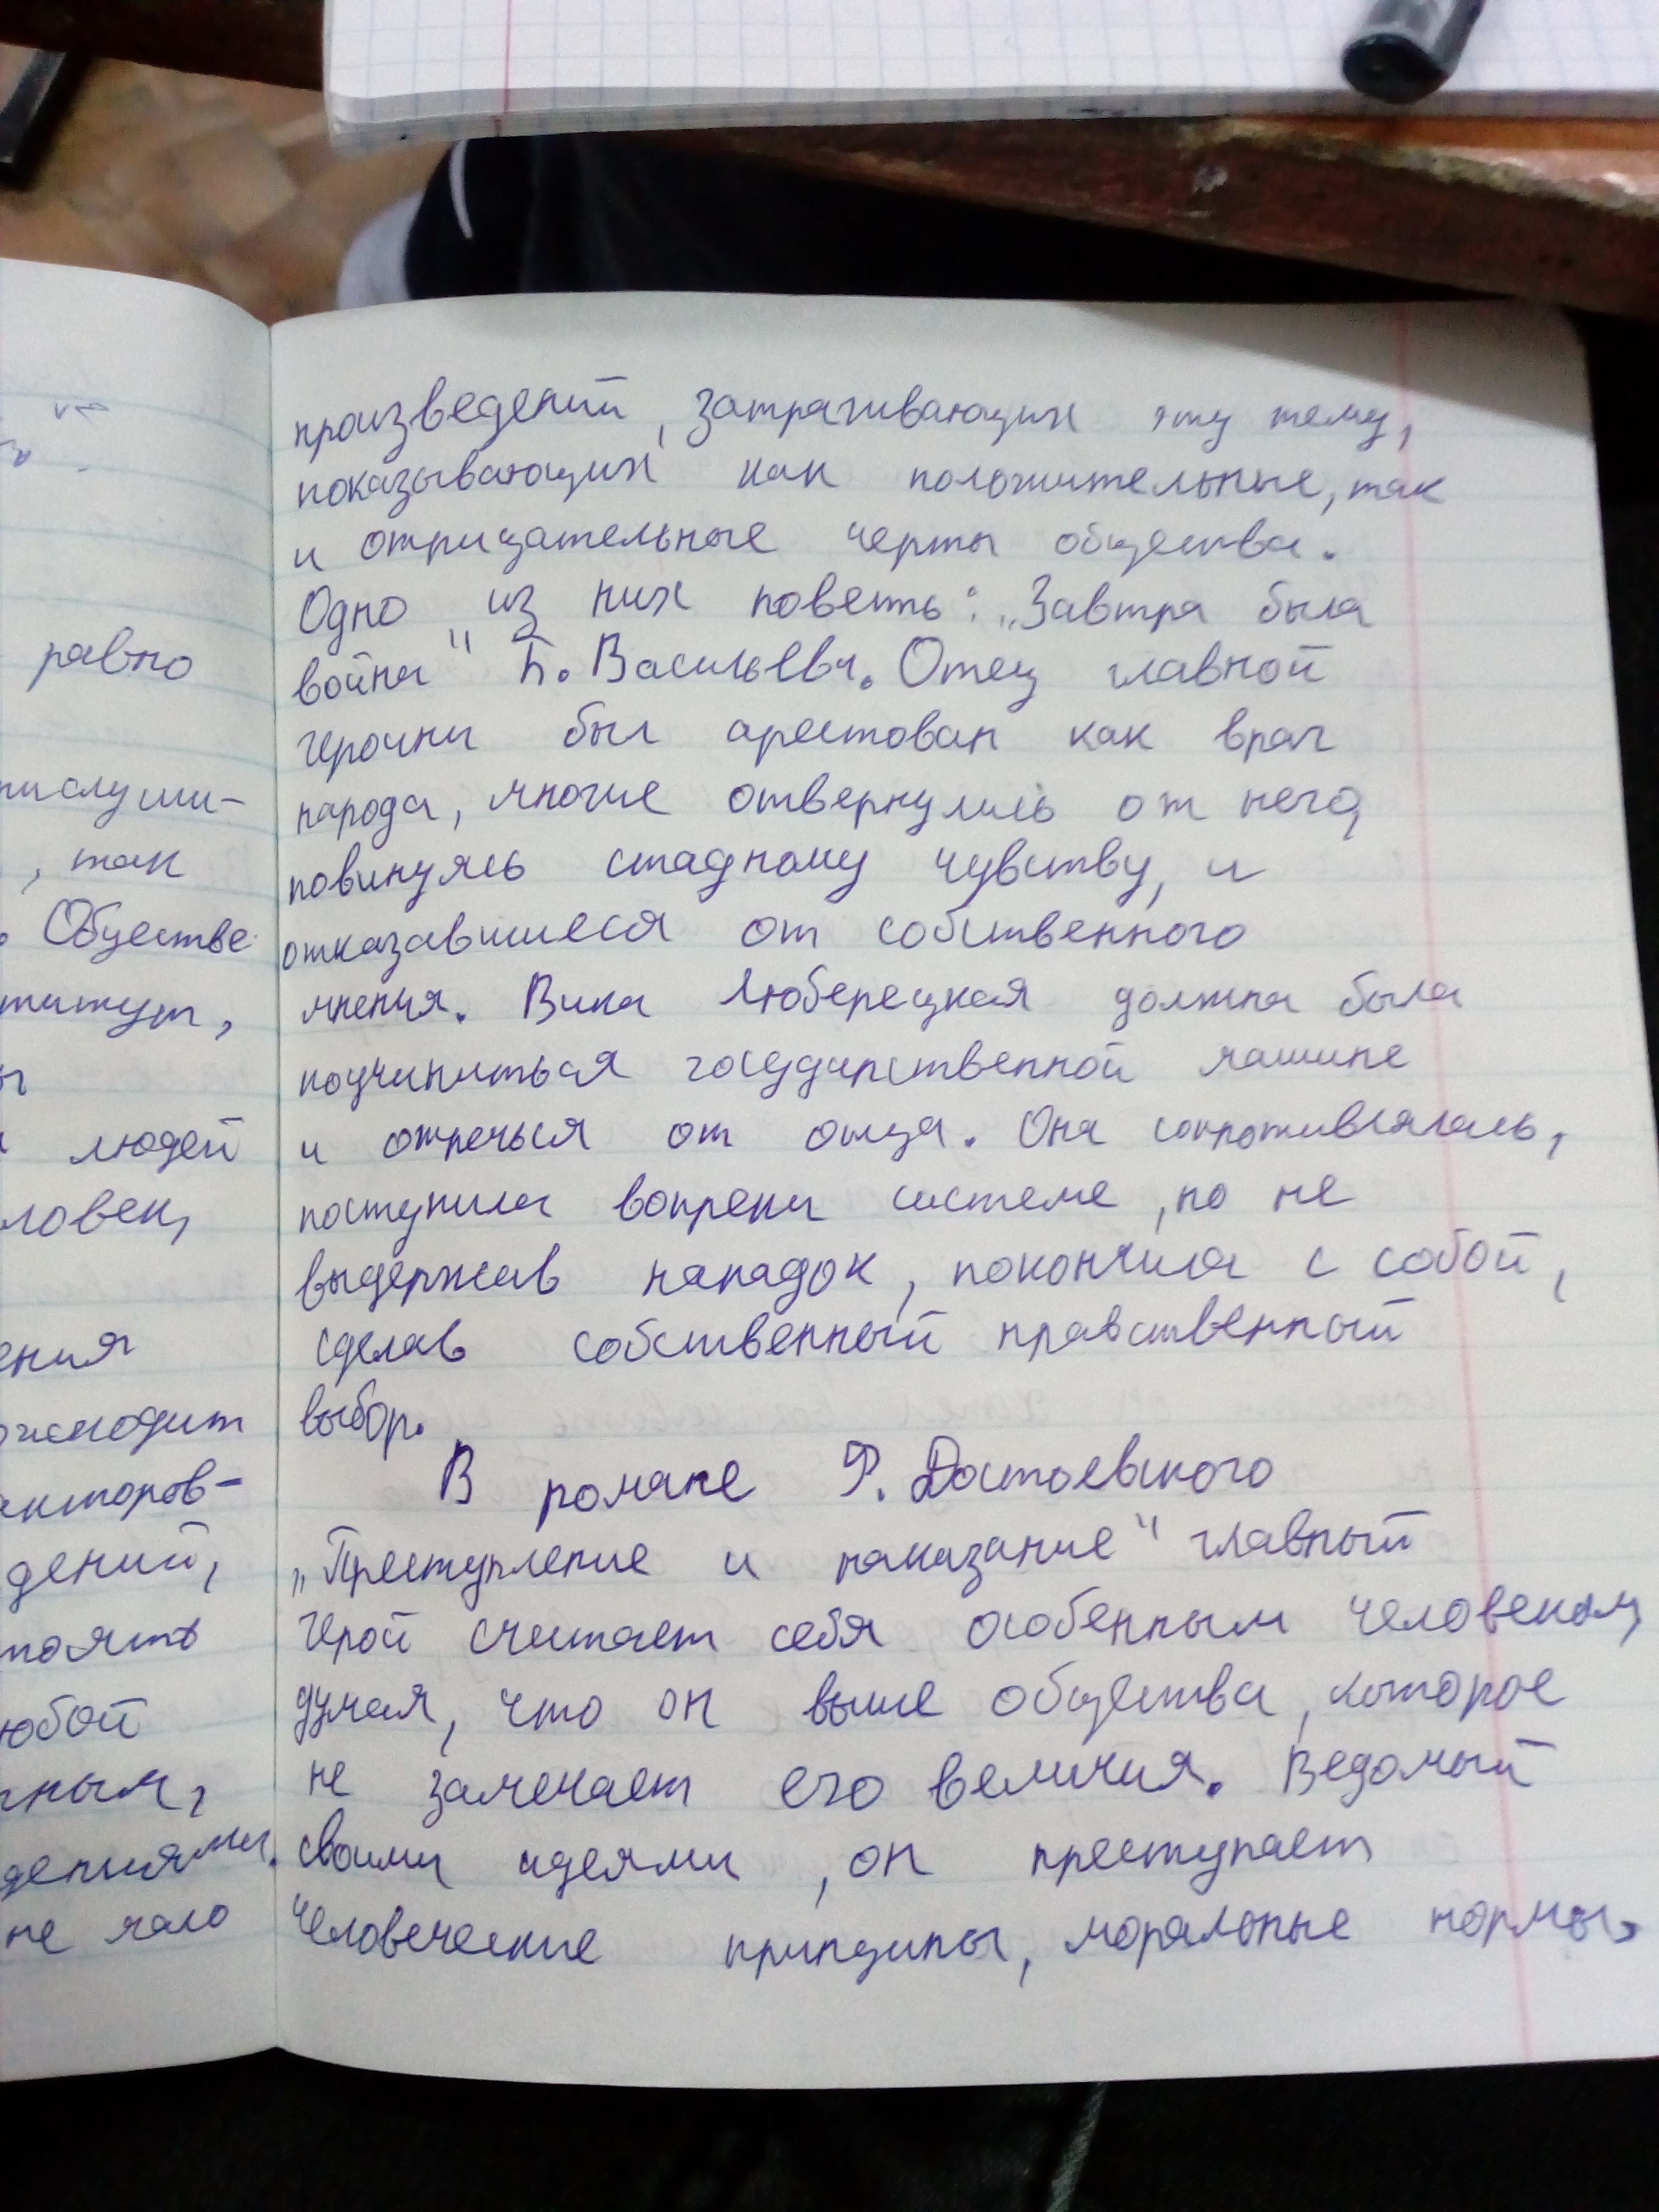 равно
, так
Обществе
людей
произведений, затрагивающих эту тему,
показывающих как положительные, так
и отрицательные черты общества.
Одно из них повесть: „Завтра была
война" Б. Васильева. Отец главной
героини был арестован как враг
народа, многие отвернулись от него,
повинуясь стадному чувству, и
отказавшиеся от собственного
мнения. Вика Люберецкая должна была
подчиниться государственной машине
и отречься от отца. Она сопротивлялась,
поступила вопреки системе, но не
выдержав нападок, покончила с собой,
сделав собственный нравственный
выбор.
В романе Ф. Достоевского
„Преступление и наказание" главный
герой считает себя особенным человеком,
думая, что он выше общества, которое
не замечает его величия. Ведомый
своими идеями, он преступает
человеческие принципы, моральные нормы,